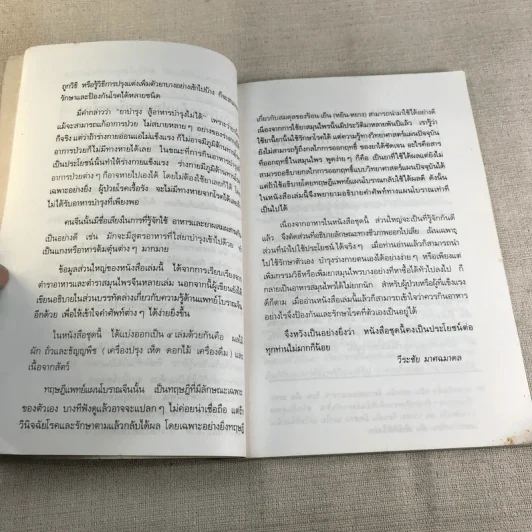 ถูกวิธี หรือรู้วิธีการปรุงแต่งเพิ่มตัวยาบางอย่างเข้าไปบ้าง ก็จะ
รักษาและป้องกันโรคได้หลายชนิด
มีคำกล่าวว่า "ยาบำรุง สู้อาหารบำรุงไม่ได้" เพราะว่า
แม้จะสามารถแก้อาการป่วย ไม่สบายหลายๆ อย่างของ
ก็จริง แต่ว่าถ้าร่างกายอ่อนแอไม่แข็งแรง ก็ไม่
อาการป่วยก็ไม่มีทางหายได้เลย ในขณะที่การกินอาหาร
เป็นประโยชน์นั้นทำให้ร่างกายแข็งแรง ร่างกายมีภูมิต้าน
อาการป่วยต่าง ๆ ก็อาจหายไปเองได้ โดยไม่ต้องใช้ยาเลยก็ได้
เฉพาะอย่างยิ่ง ผู้ป่วยโรคเรื้อรัง จะไม่มีทางหายจากโรคได้
ไม่ได้รับอาหารบำรุงที่เพียงพอ
คนจีนนั้นมีชื่อเสียงในการที่รู้จักใช้ อาหารและยาผสมผสาน
เป็นอย่างดี เช่น มักจะมีสูตรอาหารที่ใส่ยาบำรุงเข้าไปด้วย
เป็นแกงหรืออาหารต้มตุ๋นต่างๆ มากมาย
ข้อมูลส่วนใหญ่ของหนังสือเล่มนี้ ได้จากการเรียบเรียง
ตำราอาหารและตำราสมุนไพรจีนหลายเล่ม นอกจากนี้ผู้เขียนยังได้
เขียนอธิบายในส่วนบรรทัดล่างเกี่ยวกับความรู้ด้านแพทย์โบราณจีน
อีกด้วย เพื่อให้เข้าใจคำศัพท์ต่าง ๆ ได้ง่ายยิ่งขึ้น
ในหนังสือชุดนี้ ได้แบ่งออกเป็น ๔ เล่มด้วยกันคือ ผลไม้
ผัก ถั่วและธัญญพืช ( เครื่องปรุง เห็ด ดอกไม้ เครื่องดื่ม ) และ
เนื้อจากสัตว์
ทฤษฎีแพทย์แผนโบราณจีนนั้น เป็นทฤษฎีที่มีลักษณะเฉพาะ
ของตัวเอง บางทีฟังดูแล้วอาจจะแปลกๆ ไม่ค่อยน่าเชื่อถือ แต่
วินิจฉัยโรคและรักษาตามแล้วกลับได้ผล โดยเฉพาะอย่างยิ่งทฤษฎี
เกี่ยวกับสมดุลของร้อน เย็น (หยิน-หยาง) สามารถนำมาใช้ได้อย่างดี
เนื่องจากการใช้ยาสมุนไพรนั้นมีประวัติมาหลายพันปีแล้ว เรารู้ว่า
ใช้ยานี้อาการนั้นใช้รักษาโรคได้ แต่ความรู้ทางวิทยาศาสตร์แผนปัจจุบัน
ยังไม่สามารถรู้ถึงกลไกการออกฤทธิ์ ของยาได้ชัดเจน อะไรคือสาร
ที่ออกฤทธิ์ในสมุนไพร พูดง่าย ๆ ก็คือ เป็นยาที่ใช้ได้ผลแต่ยังไม่
สามารถอธิบายกลไกการออกฤทธิ์แบบวิทยาศาสตร์แผนปัจจุบันได้
แต่ถ้าใช้อธิบายโดยทฤษฎีแพทย์แผนโบราณกลับใช้ได้ผลดี ดังนั้น
ในหนังสือเล่มนี้จึงพยายามอธิบายคำศัพท์ทางแผนโบราณเท่าที่
เป็นไปได้
เนื่องจากอาหารในหนังสือชุดนี้ ส่วนใหญ่จะเป็นที่รู้จักกันดี
แล้ว จึงตัดส่วนที่อธิบายลักษณะทางชีวภาพออกไปเสีย เน้นเฉพาะ
ส่วนที่นำไปใช้ประโยชน์ ได้จริงๆ เมื่อท่านอ่านแล้วก็สามารถนำ
ไปใช้รักษาตัวเอง บำรุงร่างกายตนเองได้อย่างง่ายๆ หรือเพียงแต่
เพิ่มกรรมวิธีหรือเพิ่มยาสมุนไพรบางอย่างที่หาซื้อได้ทั่วไปลงไป ก็
กลายเป็นอาหารสมุนไพรได้ไม่ยากนัก สำหรับผู้ป่วยหรือผู้ที่แข็งแรง
ดีก็ตาม เมื่ออ่านหนังสือเล่มนี้แล้วก็สามารถเข้าใจว่าควรกินอาหาร
อย่างไรจึงป้องกันและรักษาโรคที่ตัวเองเป็นอยู่ได้
จึงหวังเป็นอย่างยิ่งว่า หนังสือชุดนี้คงเป็นประโยชน์ต่อ
ทุกท่านไม่มากก็น้อย
วีระชัย มาศฉมาดล